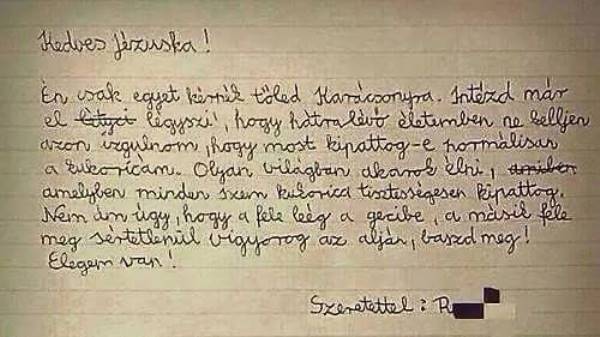 Kedves Jézuska!
Én csak egyet kérnék tőled Karácsonyra. Intézd már
el légyszi, hogy hátralévő életemben ne kelljen
azon izgulnom, hogy most kipattog-e normálisan
a kukoricám. Olyan világban akarok élni, amiben
amelyben minden szem kukorica tisztességesen kipattog.
Nem ám úgy, hogy a fele leég a gecibe, a másik fele
meg sértetlenül vigyorog az alján, baszd meg!
Elegem van!
Szeretettel: R